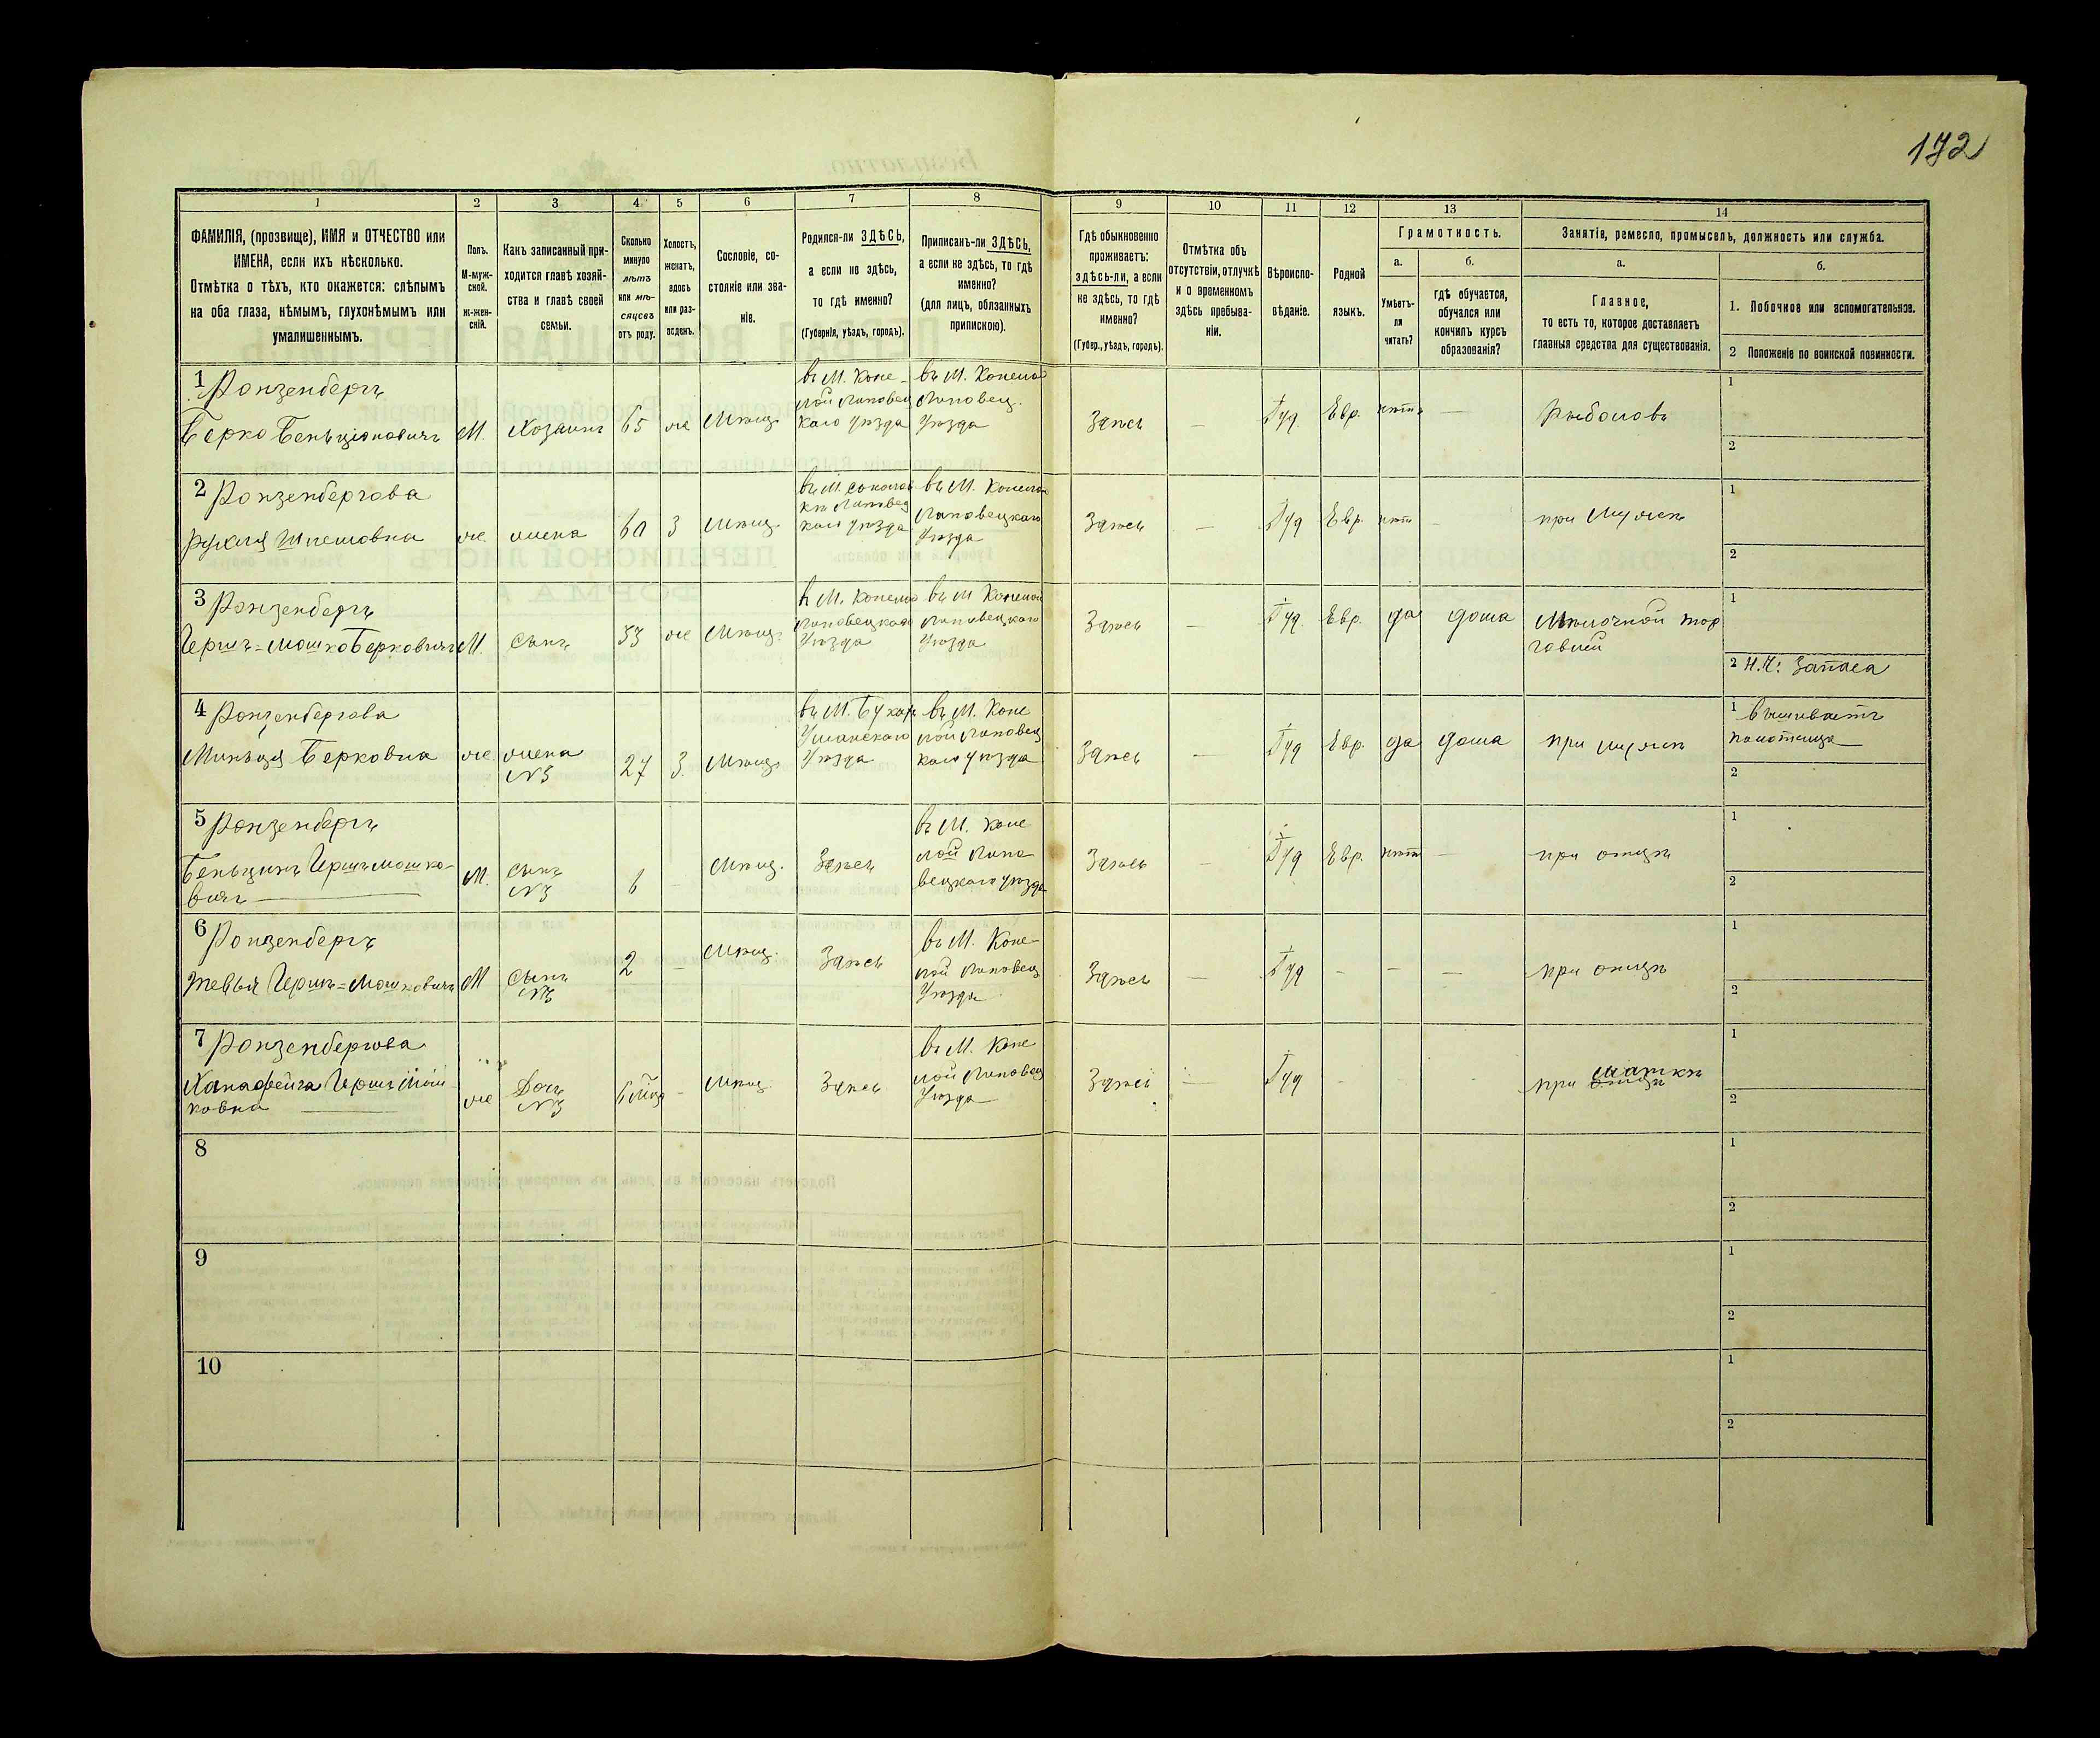 172
1
2
3
4
5
6
7
8
9
10
11
12
13
14
ФАМИЛІЯ, (прозвище), ИМЯ и ОТЧЕСТВО или
ИМЕНА, если ихъ нѣсколько.
Отмѣтка о тѣхъ, кто окажется: слѣпымъ
на оба глаза, нѣмымъ, глухонѣмымъ или
умалишеннымъ.
Полъ.
М-муж-
ской.
ж-жен-
скій.
Какъ записанный при-
ходится главѣ хозяй-
ства и главѣ своей
семьи.
Сколько
минуло
лѣтъ
или мѣ-
сяцевъ
отъ роду.
Холостъ,
женатъ,
вдовъ
или раз-
веденъ.
Сословіе, со-
стояніе или зва-
ніе.
Родился-ли ЗДѢСЬ,
а если не здѣсь,
то гдѣ именно?
(Губернія, уѣздъ, городъ).
Приписанъ-ли ЗДѢСЬ,
а если не здѣсь, то гдѣ
именно?
(для лицъ, обязанныхъ
припискою).
Гдѣ обыкновенно
проживаетъ:
здѣсь-ли, а если
не здѣсь, то гдѣ
именно?
(Губер., уѣздъ, городъ).
Отмѣтка объ
отсутствіи, отлучкѣ
и о временномъ
здѣсь пребыва-
ніи.
Вѣроиспо-
вѣданіе.
Родной
языкъ.
Грамотность.
а.
Умѣетъ-
ли
читать?
б.
гдѣ обучается,
обучался или
кончилъ курсъ
образованія?
Занятія, ремесло, промыселъ, должность или служба.
а.
Главное,
то есть то, которое доставляетъ
главныя средства для существованія.
б.
1. Побочное или вспомогательное.
2 Положеніе по воинской повинности.
1 Ронзенбергъ
Берко Беньціоновичъ
М.
Хозаинъ
65
же
Мѣщ.
въ М. Коне-
лой Липовец
каго уѣзда
въ М. Конелой
Липовец.
Уѣзда
Здѣсь
—
Іуд.
Евр.
нѣтъ
—
Рыболовъ
1
2
2 Ронзенбергова
же.
жена
60
З
Мѣщ.
каго уѣзда
въ М. Конелой
Липовецкаго
Уѣзда
Здѣсь
—
Іуд
Евр.
нѣтъ
при мужѣ
1
2
3 Ронзенбергъ
Герш=Мошко Берковичъ
М.
Сынъ
33
же
Мѣщ.
в М. Конелой
Липовецкаго
Уѣзда
въ М Конелой
Липовецкаго
Уѣзда
Здѣсь
—
Іуд.
Евр.
да
дома
Мѣлочной тор
говлей
1
2 Н.Ч. Запаса
4 Ронзенбергова
Миньця Берковна
же.
жена
№3
27
З.
Мѣщ.
Уманскаго
Уѣзда
въ М. Коне
лой Липовец
каго уѣзда
Здѣсь
—
Іуд
Евр.
да
дома
при мужѣ
1 вышиваетъ
полотенца
2
5 Ронзенбергъ
Беньцинъ Гершъмошко-
вичъ
М.
Сынъ
№3
6
Мѣщ.
Здѣсь
въ М. Коне
лой Липо
вецкаго уѣзда
Здѣсь
—
Іуд
Евр.
нѣтъ
—
при отцѣ
1
2
6 Ронзенбергъ
Гершъ=Мошковичъ
М
Сынъ
№3
2
—
Мѣщ.
Здѣсь
въ М. Коне-
лой Липовец
Уѣзда
Здѣсь
—
Іуд
—
—
—
при отцѣ
1
2
7 Ронзенбергова
Ханафейга Герш Мош
ковна
же
Дочь
№3
6 мѣс
—
Мѣщ
Здѣсь
въ М. Коне
лой Липовец
Уѣзда
Здѣсь
—
Іуд
при маткѣ
1
2
8
1
2
9
1
2
10
1
2